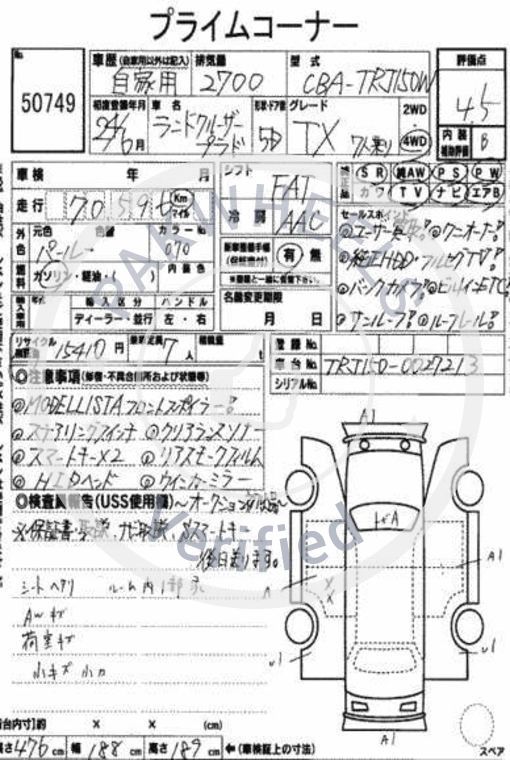 プライムコーナー
No.
50749
車歴(自家用以外は記入)
自家用
排気量
2700
型式
CBA-TRJ150W
評価点
4.5
初度登録年月
24/6月
車名
ランドクルーザー
プラド
形状・ドア数
5D
グレード
TX 7人乗り
2WD
4WD
内装
補助評価
B
車検 年 月
シフト
FAT
SR 純AW PS PW
カワ TV ナビ エアB
走行
70596
Km
マイル
冷房
AAC
外色
元色 色替
パール
カラーNo.
070
燃料
ガソリン・軽油・( )
内装色
新車整備手帳
(保証書付)
有 無
セールスポイント
◎純正HDD・フルセグTV!!
◎バックカメラ!! ◎ビルインETC
◎サンルーフ!! ◎ルーフレール!!
輸入車用
年式
輸入区分
ハンドル
ディーラー・並行
左・右
名義変更期限
月 日
リサイクル
預託金
15410円
乗車定員
7人
積載量
t
登録No.
車台No.
TRJ150-0027213
シリアルNo.
◎注意事項(修復・不具合個所および状態等)
◎MODELLISTAフロントスポイラー!!
◎ステアリングスイッチ ◎クリアランスソナー
◎スマートキー×2 ◎リアスモークフィルム
◎HIDヘッド ◎ウィンカーミラー
◎検査員報告(USS使用欄)
後日送ります。
シートヘタリ ルーム内1部
AWキズ
荷室キズ
小キズ 小凹
A1
トビA
A1
A
X
X
U1
U1
A1
スペア
荷台内寸]約 × × (cm)
長さ476cm 幅188cm 高さ189cm ←(車検証上の寸法)
PAKWHEELS
Verified